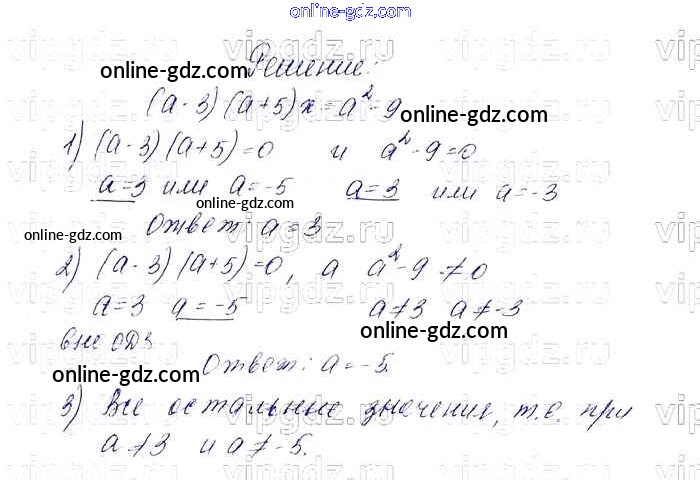 online-gdz.com
Решение:
(a-3)(a+5)x=a²-9
1) (a-3)(a+5)=0 и a²-9=0
a=3 или a=-5 a=3 или a=-3
Ответ: a=3
2) (a-3)(a+5)=0, а a²-9≠0
a=3 a=-5 a≠3 a≠-3
вне ОДЗ
Ответ: a=-5.
3) Все остальные значения, т.е. при
a≠3 и a≠-5.
online-gdz.com
online-gdz.com
online-gdz.com
online-gdz.com
online-gdz.com
online-gdz.com
vipgdz.ru